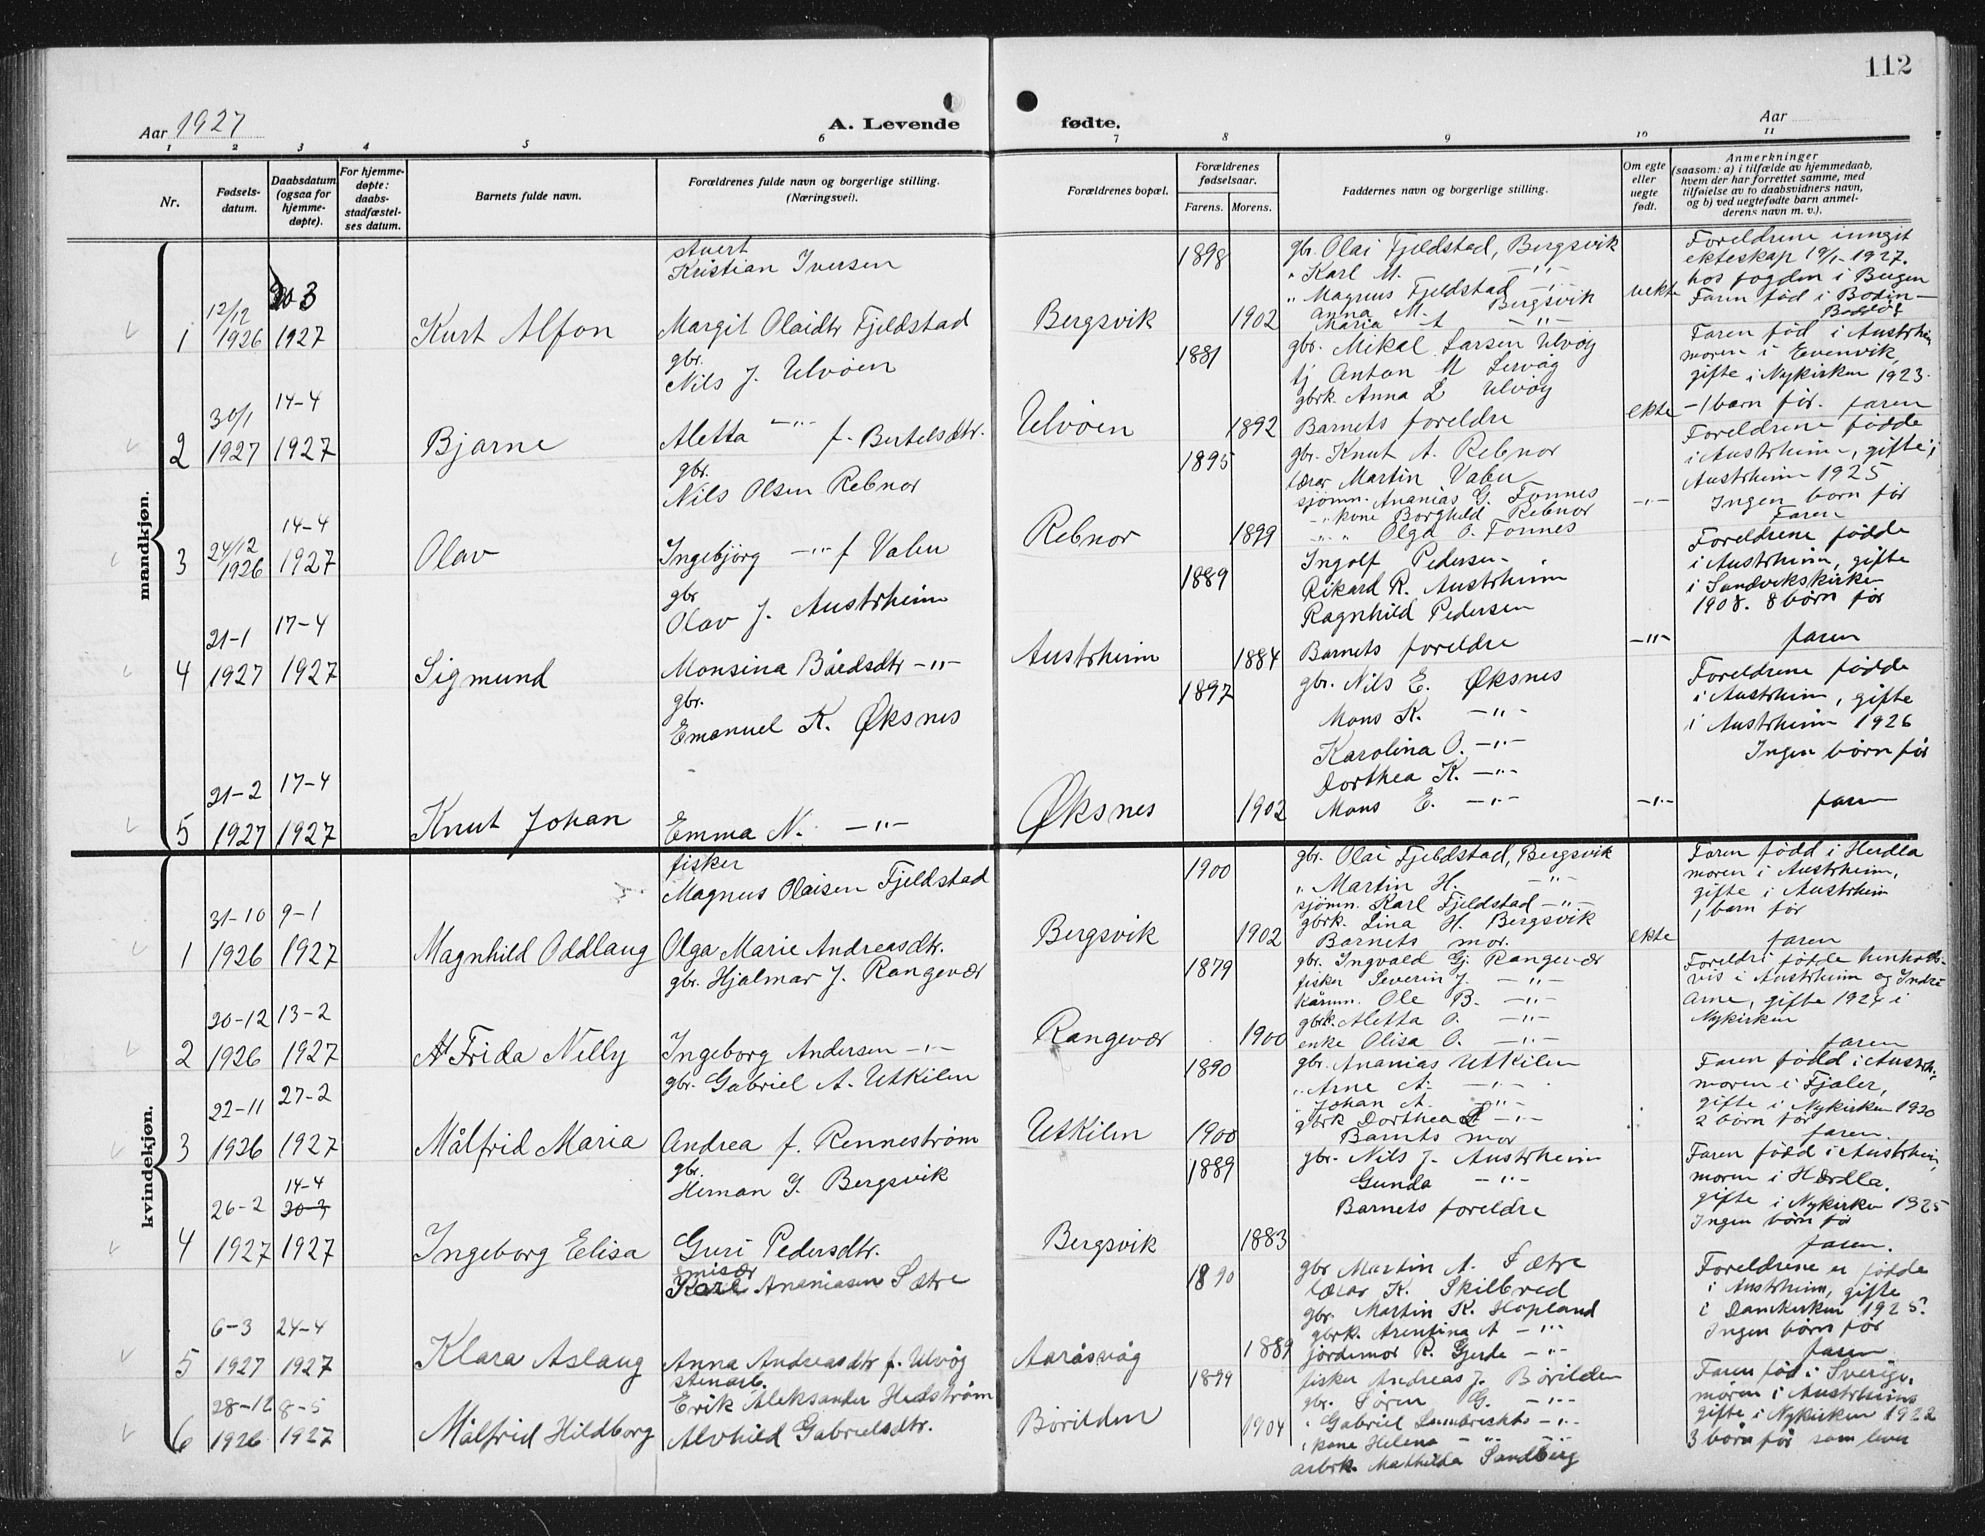 112
Aar 1927
A. Levende fødte.
Aar
1 2 3 4 5 6 7 8 9 10 11
Nr.
Fødsels-
datum.
Daabsdatum
(ogsaa for
hjemme-
døpte).
For hjemme-
døpte:
daabs-
stadfæstel-
ses datum.
Barnets fulde navn.
Forældrenes fulde navn og borgerlige stilling.
(Næringsvei).
Forældrenes bopæl.
Forældrenes
fødselsaar.
Farens. Morens.
Faddernes navn og borgerlige stilling.
Om egte
eller
uegte
født.
Anmerkninger
(saasom: a) i tilfælde av hjemmedaab,
hvem der har forrettet samme, med
tilføielse av to daabsvidners navn,
og b) ved uegtefødte barn anmel-
derens navn m. v.).
mandkjøn.
1 12/12 1926 1927 Kurt Alfon
stuert
Kristian Iversen
Margit Olaidtr Fjeldstad
Bergsvik 1898 1902
gbr. Olai Fjeldstad, Bergsvik
" Karl M. -"-
" Magnus Fjeldstad -"-
Anna M. Bergsvik
Maria A -"-
uekte
Foreldrene inngit
ekteskap 19/1-1927.
hos fogden i Bergen
Faren fød i Bodin-
2 30/1 1927 14-4 1927 Bjarne
gbr.
Nils J. Ulvøen
Aletta -"- f. Bertelsdtr.
Ulvøen 1881 1892
gbr. Mikal Larsen Ulvøy
tj Anton M Lervåg
gbrk. Anna L Ulvøy
Barnets foreldre
ekte
Faren fød i Austrheim
moren i Evenvik,
gifte i Nykirken 1923.
-1 barn før. faren
3 24/12 1926 14-4 1927 Olav
gbr.
Nils Olsen Rebnor
Ingebjörg -"- f Vabu
Rebnor 1895 1899
gbr. Knut A. Rebnor
lærar Martin Vabu
sjömn. Ananias G. Fonnes
-"- kone Borghild Rebnor
" " Olga O. Fonnes
-"-
Foreldrene födde
i Austrheim, gifte i
Austrheim 1925
Ingen born før
Faren
4 21-1 1927 17-4 1927 Sigmund
gbr
Olav J. Austrheim
Monsina Bårdsdtr -"-
Austrheim 1889 1884
Ingolf Pedersen
Rikard R. Austrheim
Ragnhild Pedersen
Barnets foreldre
-"-
Foreldrene födde
i Austrheim, gifte
i Sandvikskirken
1908. 8 børn før
faren
5 21-2 1927 17-4 1927 Knut Johan
gbr.
Emanuel K. Øksnes
Emma N. -"-
Øksnes 1897 1902
gbr. Nils E. Øksnes
Mons K. -"-
Karolina O. -"-
Dorthea K. -"-
Mons E. -"-
-"-
Foreldrene födde
i Austrheim, gifte
i Austrheim 1926
Ingen børn før
faren
kvindekjøn.
1 31-10 1926 9-1 1927 Magnhild Oddlaug
fisker
Magnus Olaisen Fjeldstad
Olga Marie Andreasdtr.
Bergsvik 1900 1902
gbr. Olai Fjeldstad, Bergsvik
" Martin H. -"-
sjömn. Karl Fjeldstad -"-
gbrk. Lina H. Bergsvik
Barnets mor.
ekte
Faren född i Herdla
moren i Austrheim,
gifte i Austrheim
1 barn før
faren
2 20-12 1926 13-2 1927 Frida Nelly
gbr. Hjalmar J. Rangevær
Ingeborg Andersen -"-
Rangevær 1879 1900
gbr. Ingvald Gj. Rangevær
fisker Severin J. -"-
kårmn. Ole B. -"-
gbrk. Aletta O. -"-
enke Olisa O. -"-
Foreldr. födde henholds-
vis i Austrheim og Indre
Arne, gifte 1924 i
Nykirken
faren
3 22-11 1926 27-2 1927 Målfrid Maria
gbr. Gabriel A. Utkilen
Andrea f. Renneström
Utkilen 1890 1900
gbr. Ananias Utkilen
" Arne A. -"-
" Johan A. -"-
gbrk Dorthea A -"-
Barnets mor
Faren född i Austrh.
moren i Fjaler,
gifte i Nykirken 1920
2 børn før
faren.
4 26-2 1927 14-4 20-3 1927 Ingeborg Elisa
gbr.
Herman J. Bergsvik
Guri Pedersdtr.
Bergsvik 1889 1883
gbr. Nils J. Austrheim
Gunda -"-
Barnets foreldre
Faren född i Austrheim,
moren i Hærdla.
gifte i Nykirken 1925
Ingen børn før
faren.
5 6-3 1927 24-4 1927 Klara Aslaug
emisær
Karl Ananiasen Sætre
Anna Andreasdtr f. Ulvøy
Aaråsvåg 1890 1889
gbr Martin A. Sætre
lærar K. Skilbred
gbr. Martin K. Hopland
gbrk. Arentina A -"-
jordemor R. Gjerde -"-
Foreldrene er födde
i Austrheim, gifte
i Domkirken 1925.
Ingen børn før
faren
6 28-12 1926 8-5 1927 Målfrid Hildborg
stenarb.
Erik Aleksander Hedström
Alvhild Gabrielsdtr.
Börilden 1899 1904
fisker Andreas J. Börilden
gbr. Sören G. -"-
" Gabriel Lambrichts -"-
" kone Helena -"- -"-
arbrk. Mathilda Sandberg
Faren fød i Sverige,
moren i Austrheim,
gifte i Nykirken 1922
3 børn før som lever